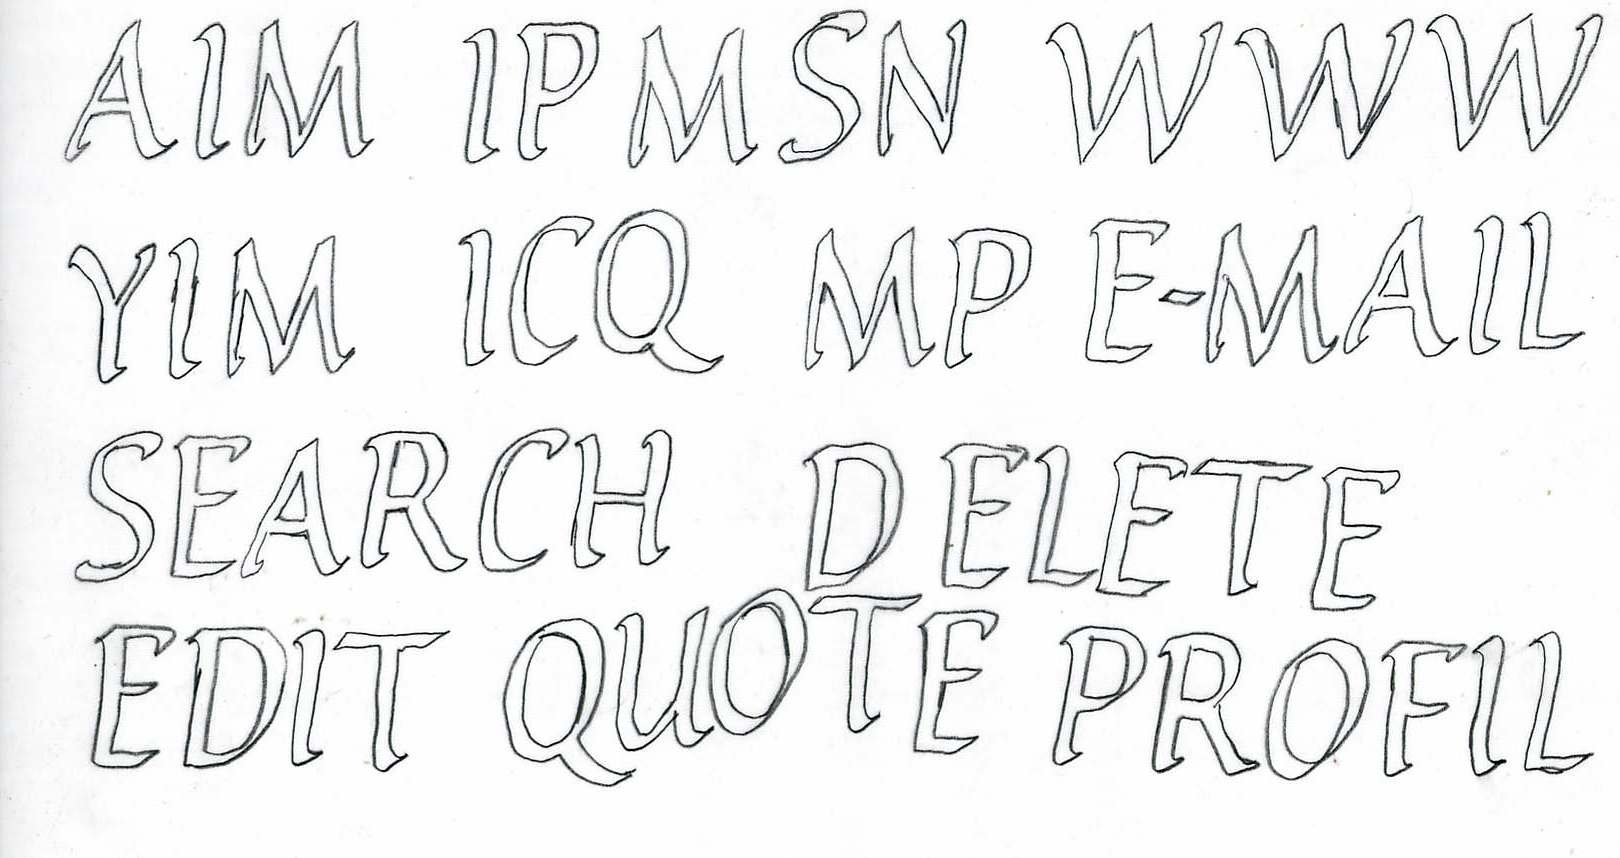 AIM IP MSN WWW
YIM ICQ MP E-MAIL
SEARCH DELETE
EDIT QUOTE PROFIL